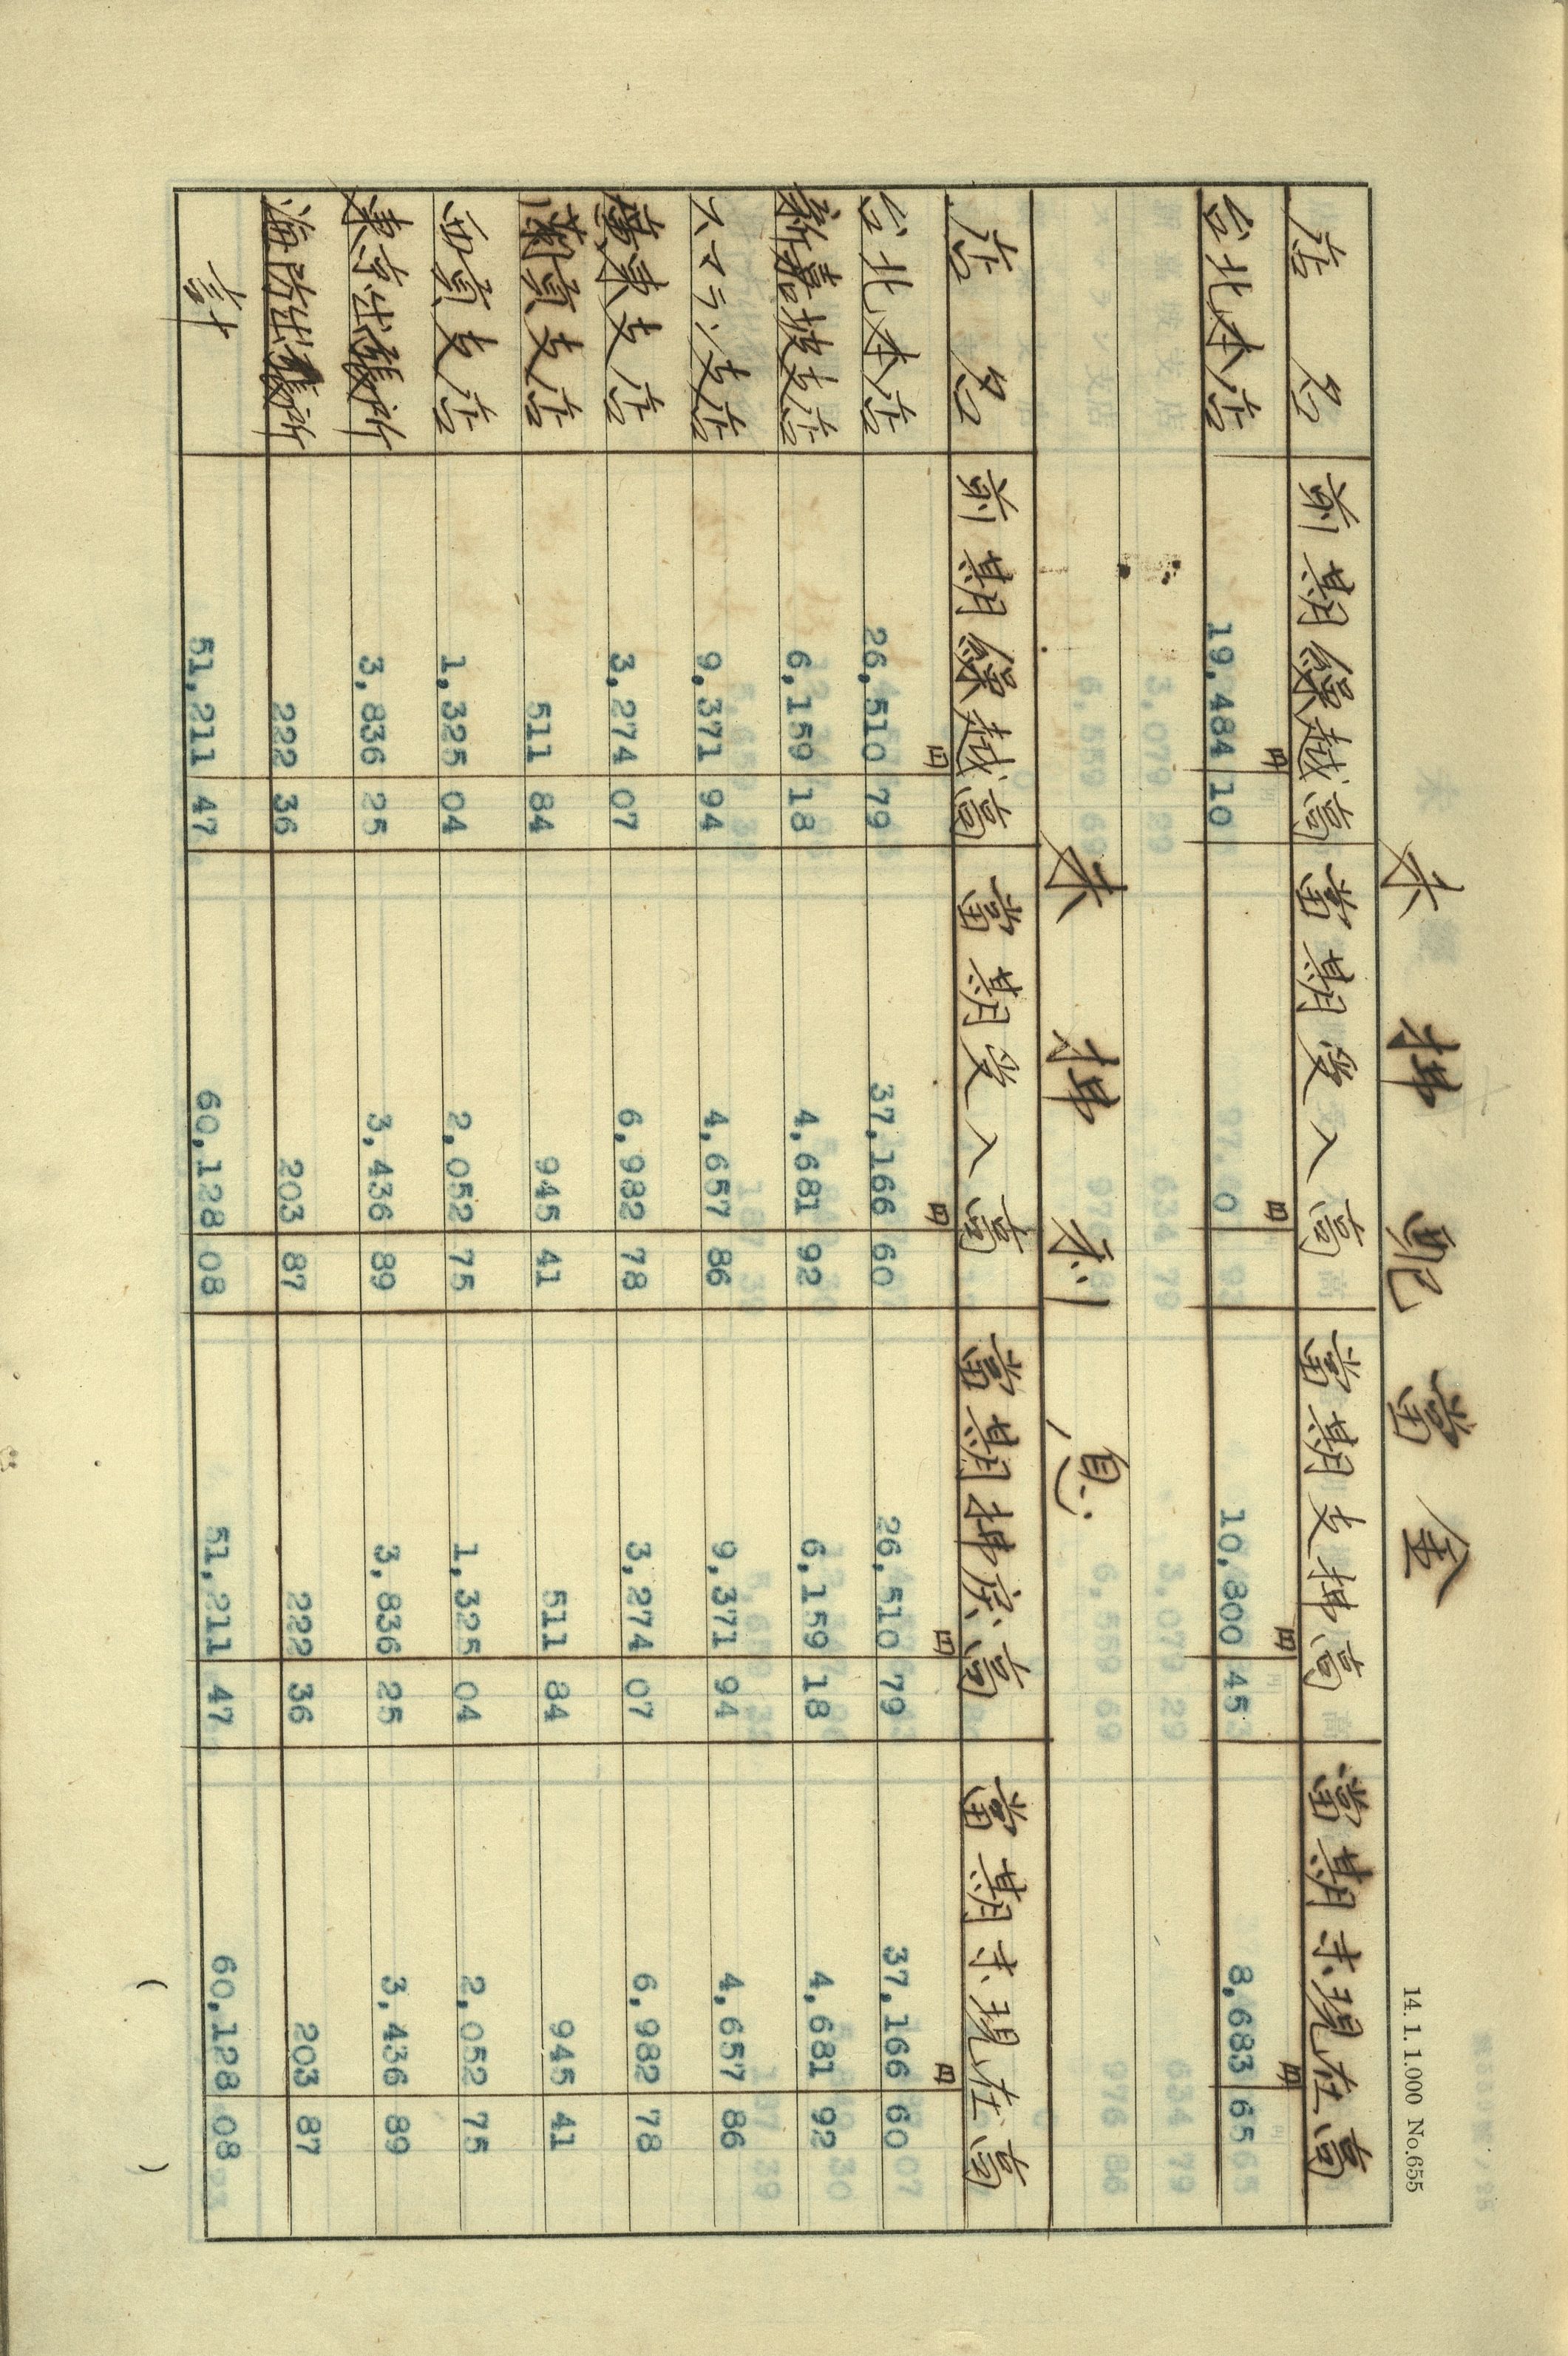 14. 1. 1.000 No.655
未拂配當金
店名 前期繰越高 當期受入高 當期支拂高 當期末現在高
円 円 円 円
台北本店 19,484 10 0 10,800 45 8,683 65
未拂利息
店名 前期繰越高 當期受入高 當期拂戻高 當期末現在高
円 円 円 円
台北本店 26,510 79 37,166 60 26,510 79 37,166 60
新嘉坡支店 6,159 18 4,681 92 6,159 18 4,681 92
スマラン支店 9,371 94 4,657 86 9,371 94 4,657 86
廣東支店 3,274 07 6,982 78 3,274 07 6,982 78
蘭貢支店 511 84 945 41 511 84 945 41
西貢支店 1,325 04 2,052 75 1,325 04 2,052 75
東京出張所 3,836 25 3,436 89 3,836 25 3,436 89
海防出張所 222 36 203 87 222 36 203 87
計 51,211 47 60,128 08 51,211 47 60,128 08
( )